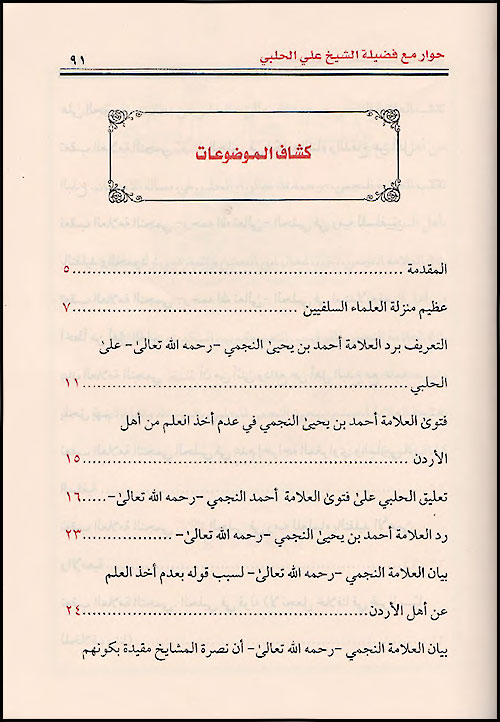 حوار مع فضيلة الشيخ علي الحلبي
٩١
كشاف الموضوعات
المقدمة ........................................ ٥
عظيم منزلة العلماء السلفيين ........................ ٧
التعريف برد العلامة أحمد بن يحيىٰ النجمي -رحمه الله تعالىٰ- علىٰ
الحلبي ........................................ ١١
فتوىٰ العلامة أحمد بن يحيىٰ النجمي في عدم أخذ العلم من أهل
الأردن ........................................ ١٥
تعليق الحلبي علىٰ فتوىٰ العلامة أحمد النجمي -رحمه الله تعالىٰ-.....١٦
رد العلامة أحمد بن يحيىٰ النجمي -رحمه الله تعالىٰ- .................. ٢٣
بيان العلامة النجمي -رحمه الله تعالىٰ- لسبب قوله بعدم أخذ العلم
عن أهل الأردن........................................ ٢٤
بيان العلامة النجمي -رحمه الله تعالىٰ- أن نصرة المشايخ مقيدة بكونهم